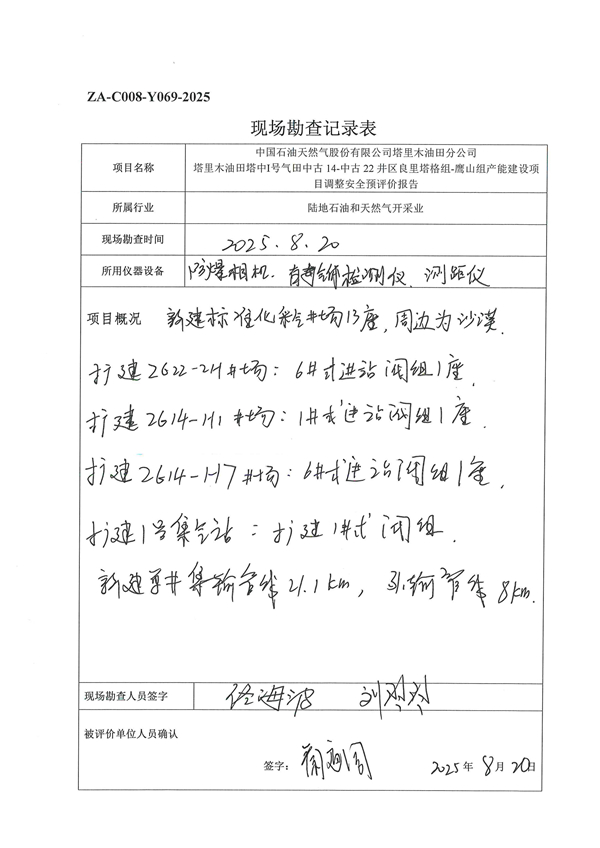 ZA-C008-Y069-2025
现场勘查记录表
项目名称
中国石油天然气股份有限公司塔里木油田分公司
塔里木油田塔中I号气田中古 14-中古 22 井区良里塔格组-鹰山组产能建设项
目调整安全预评价报告
所属行业
陆地石油和天然气开采业
现场勘查时间
2025.8.20
所用仪器设备
防爆相机、检测仪、测距仪
项目概况 新建标准化采气井场13座,周边为沙漠.
扩建ZG22-2H井场: 6井式进站阀组1座,
扩建ZG14-H1井场: 1井式进站阀组1座,
扩建ZG14-H7井场: 6井式进站阀组1座,
扩建1号集气站: 扩建1井式阀组.
新建单井集输管线21.1km, 管线8km.
现场勘查人员签字
海波 刘
被评价单位人员确认
签字:
2025年8月20日